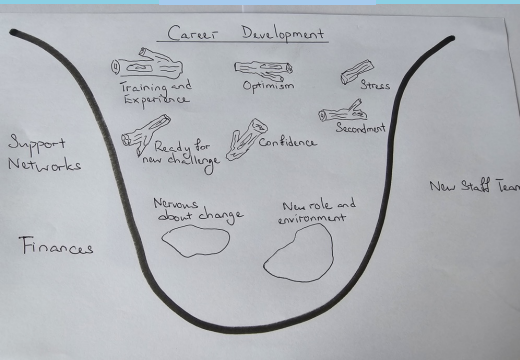 Career Development
Training and
Experience
Optimism
Stress
Secondment
Ready for
new challenge
Confidence
Support
Networks
New Staff Team
Nervous
about change
New role and
environment
Finances